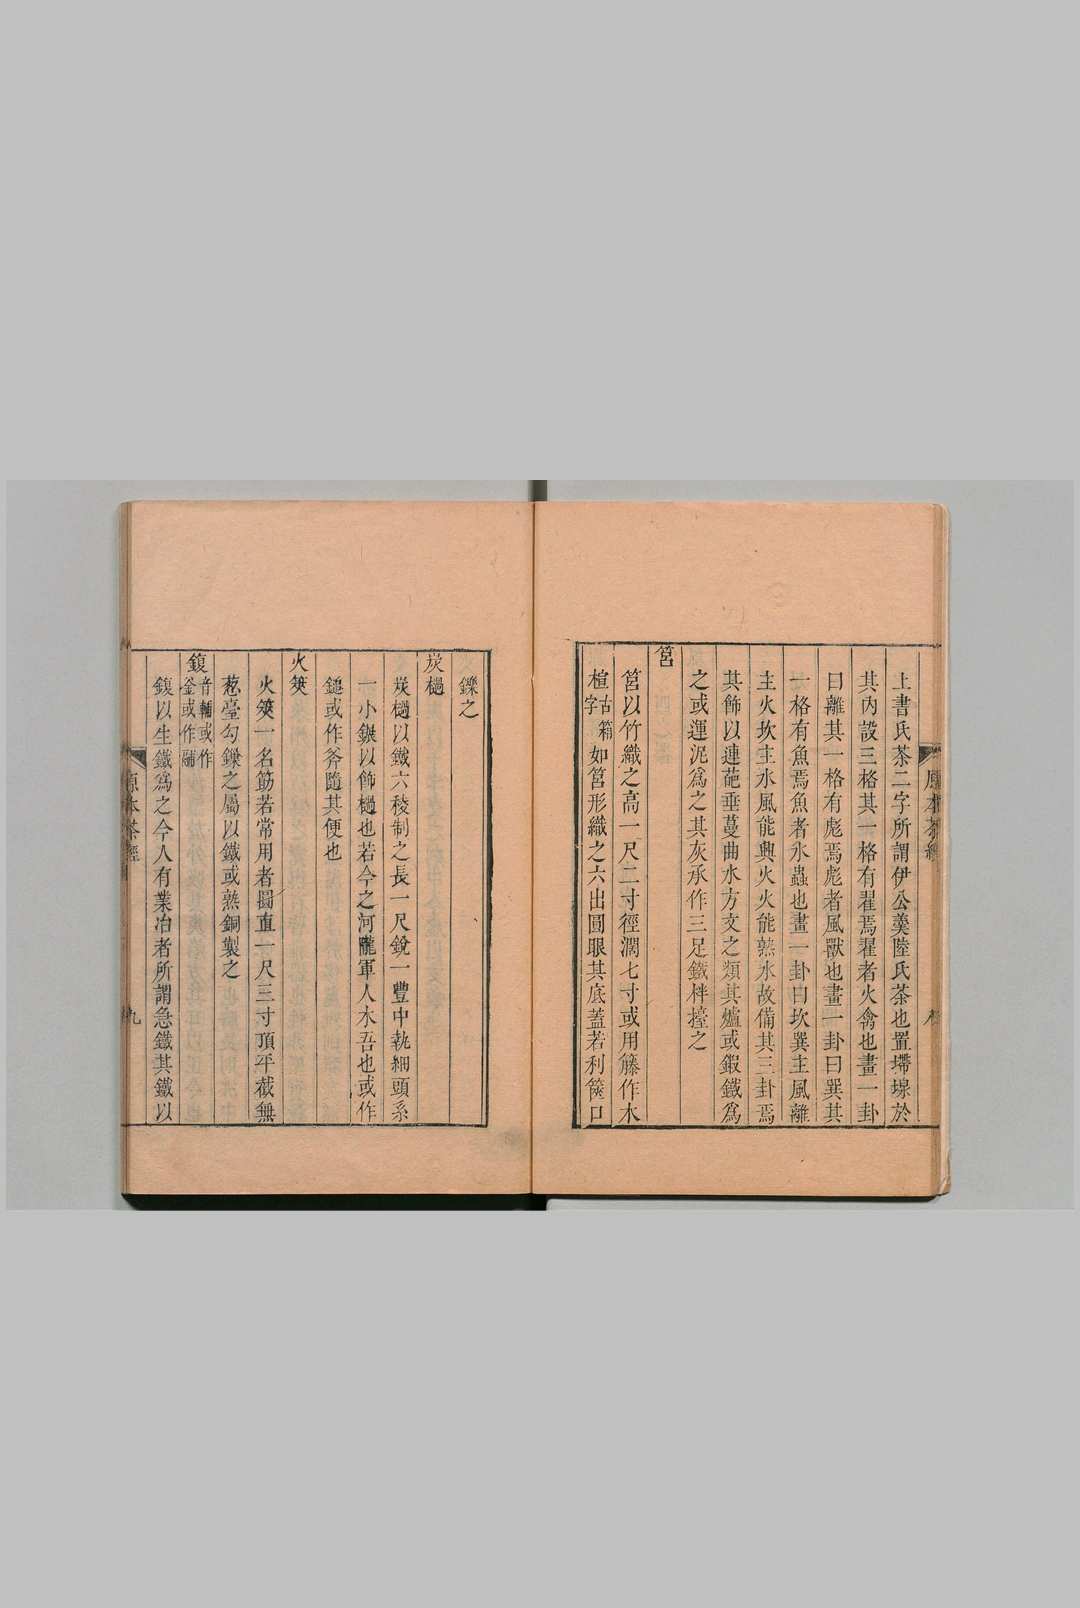 上書氏茶二字所謂伊公羹陸氏茶也置㙞㙛於
其內設三格其一格有翟焉翟者火禽也畫一卦
曰離其一格有彪焉彪者風獸也畫一卦曰巽其
一格有魚焉魚者水蟲也畫一卦曰坎巽主風離
主火坎主水風能興火火能熟水故備其三卦焉
其飾以連葩垂蔓曲水方文之類其爐或鍜鐵爲
之或運泥爲之其灰承作三足鐵柈擡之
筥
筥以竹織之高一尺二寸徑濶七寸或用籐作木
楦古箱字如筥形織之六出圓眼其底蓋若利篋口
鑠之
炭檛
炭檛以鐵六稜制之長一尺銳一豐中執細頭系
一小䥖以飾檛也若今之河隴軍人木吾也或作
鎚或作斧隨其便也
火筴
火筴一名筯若常用者圓直一尺三寸頂平截無
葱臺勾鏁之屬以鐵或熟銅製之
鍑音輔或作釜或作鬴
鍑以生鐵爲之今人有業冶者所謂急鐵其鐵以
原本茶經
九